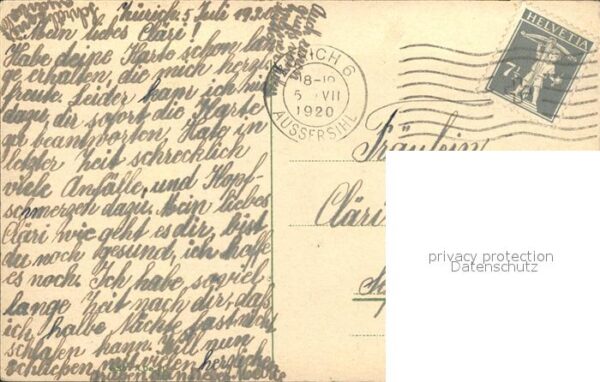 Zürich, 5 Juli 1920
Mein liebes Cläri!
Habe deine Karte schon lan
ge erhalten, die mich herzlich
freute. Leider kam ich nie
dazu, dir sofort die Karte
zu beantworten. Hatte in
letzter Zeit schrecklich
viele Anfälle, und Kopf-
schmerzen dazu. Mein liebes
Cläri wie geht es dir, bist
du noch gesund, ich hoffe
es noch. Ich habe so viel
lange Zeit nach dir, daß
ich halbe Nächte fast nicht
schlafen kann. Will nun
schließen mit vielen herzlichen
ZÜRICH 6
18-19
5 VII
1920
AUSSERSIHL
HELVETIA
7½
Fräulein
Cläri
privacy protection
Datenschutz